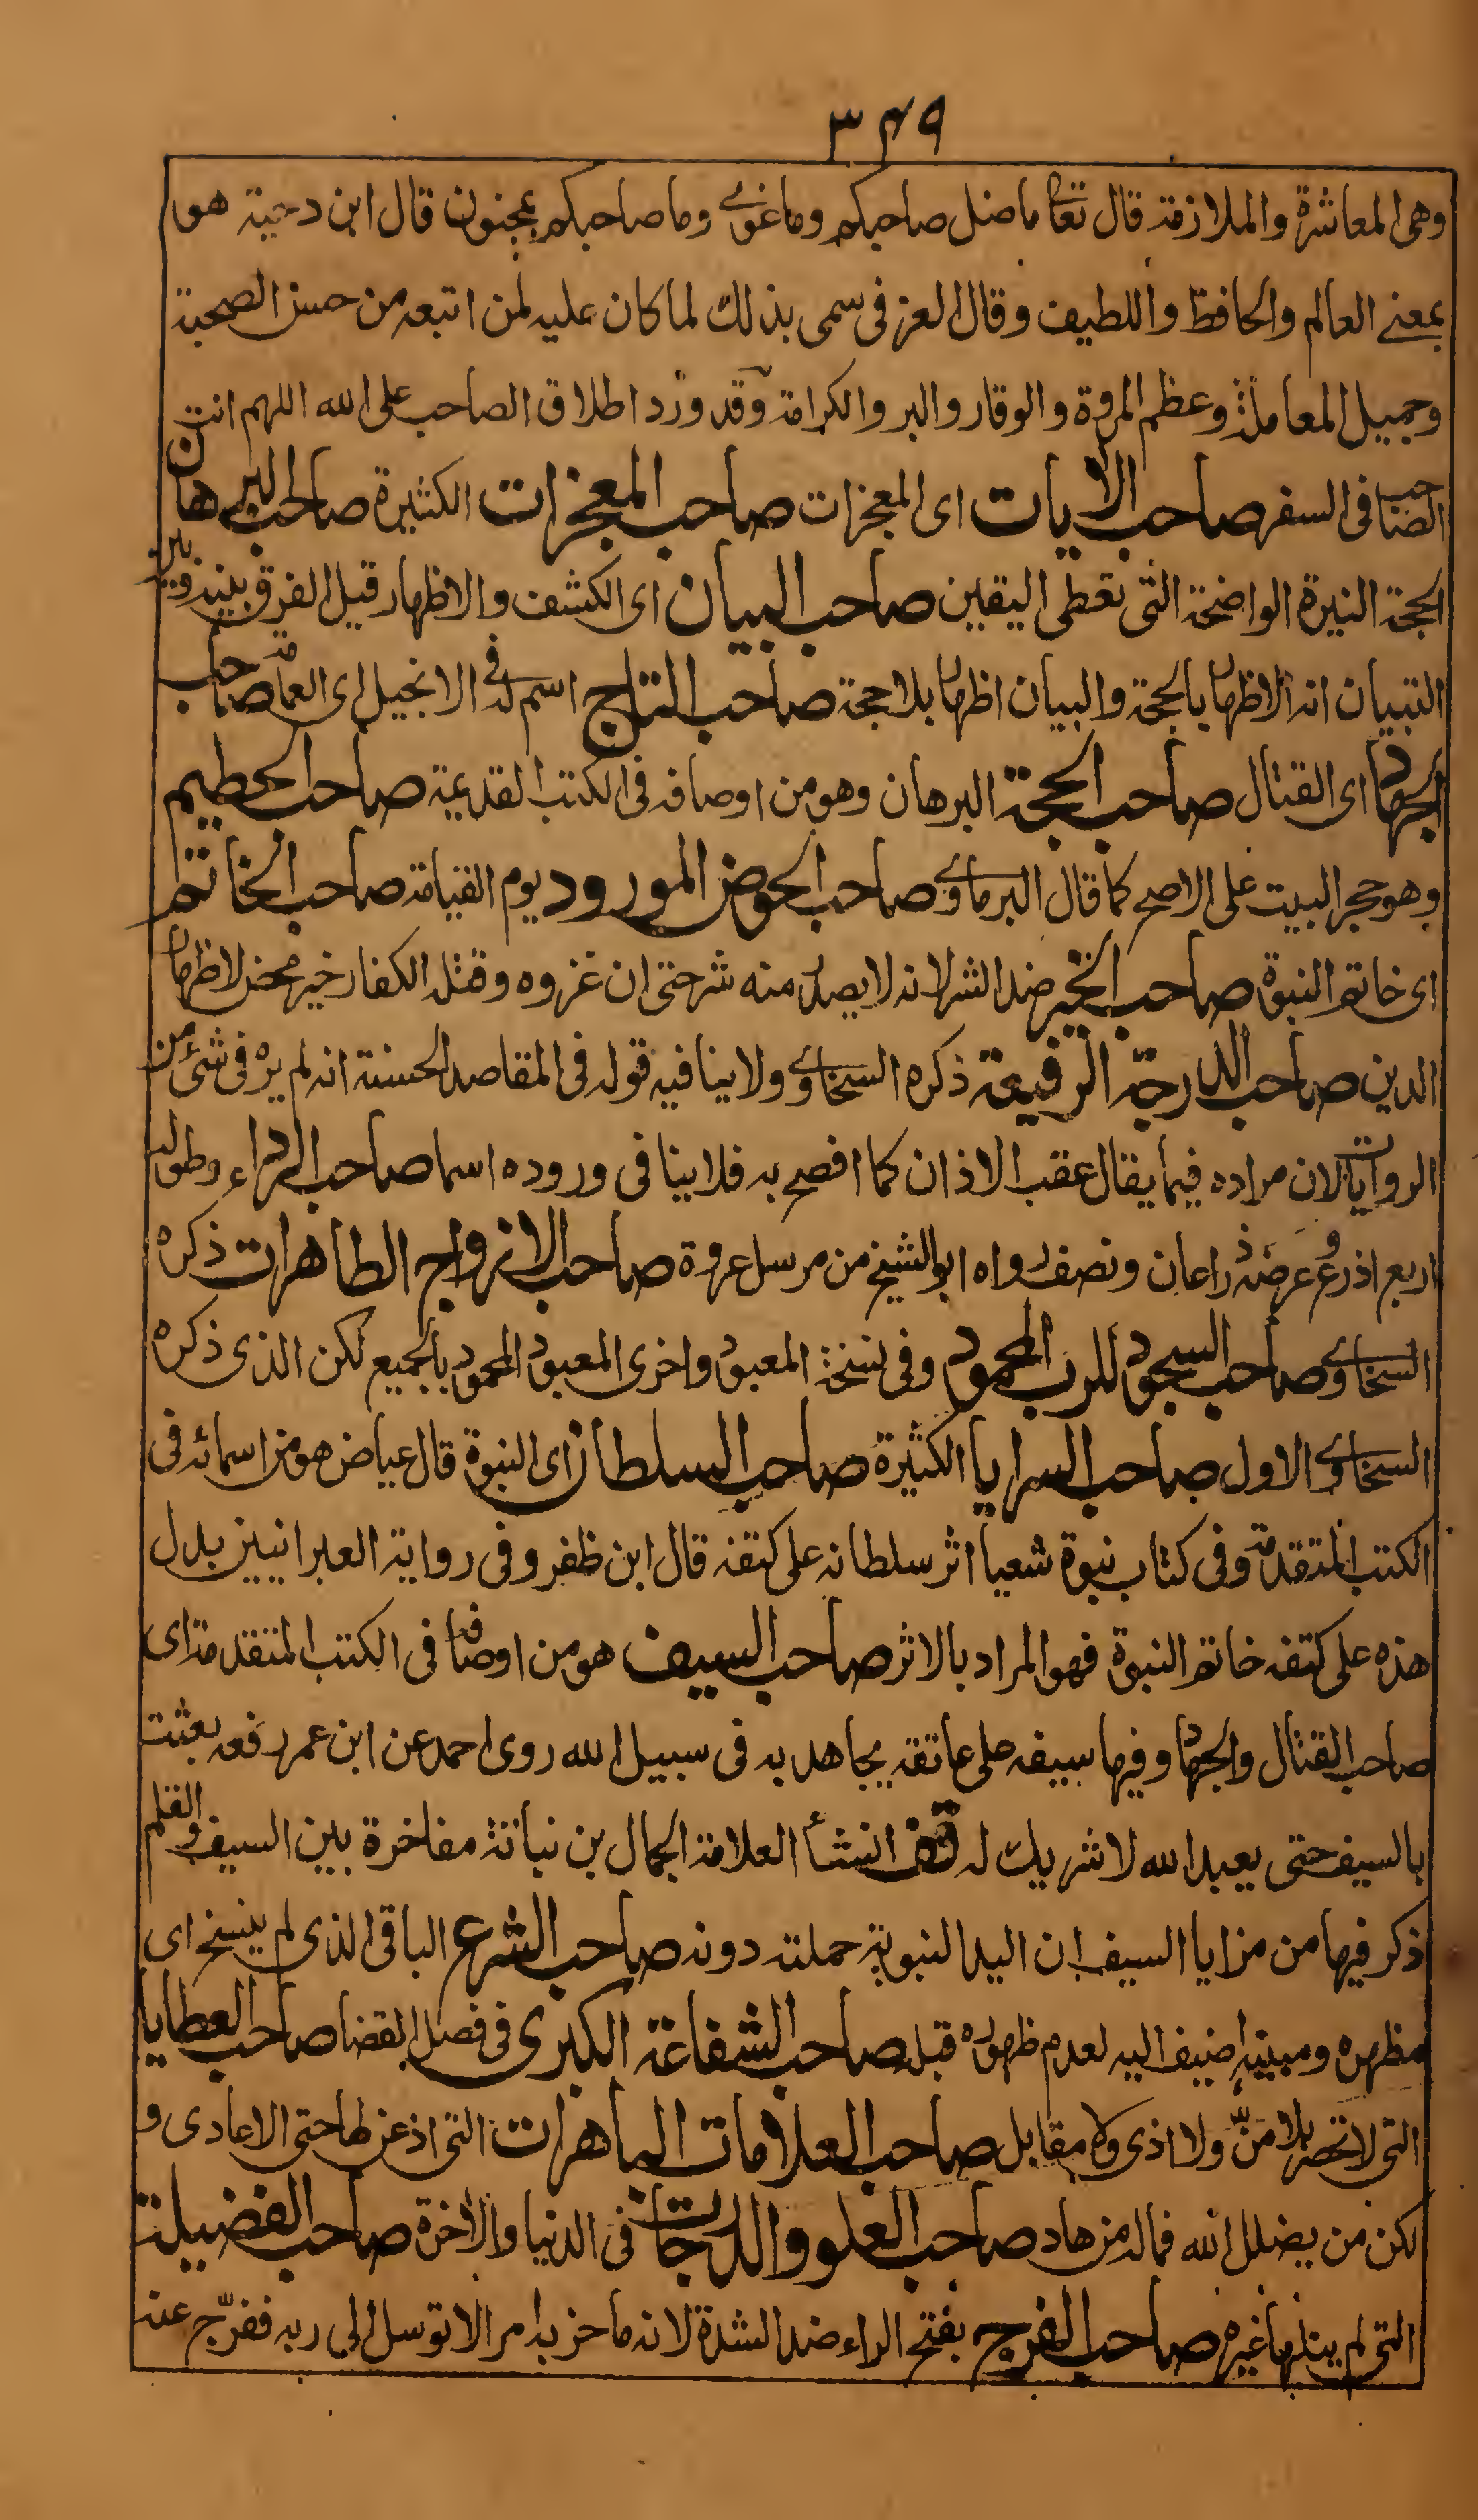 ٣٤٩
وهى المعاشرة والملازمة قال تعا ما ضل صاحبكم وما غوى وما صاحبكم بمجنون قال ابن دحية هو
بمعنى العالم والحافظ واللطيف وقال العزفى سمى بذلك لما كان عليه لمن اتبعه من حسن الصحبة
وجميل المعاملة وعظم المروة والوقار والبر والكرامة وقد ورد اطلاق الصاحب على الله اللهم انت
الصاحب فى السفر صاحب الايات اى المعجزات صاحب المعجزات الكثيرة صاحب البرهان
الحجة النيرة الواضحة التى تعطى اليقين صاحب البيان اى الكشف والاظهار قيل الفرق بينه وبين
التبيان انه الاظهار بالحجة والبيان اظهار بلا حجة صاحب التاج اسم له فى الانجيل اى العمامة صاحب
الجهاد اى القتال صاحب الحجة البرهان وهو من اوصافه فى الكتب القديمة صاحب الحطيم
وهو حجر البيت على الاصح كما قال البرماوى صاحب الحوض المورود يوم القيامة صاحب الخاتم
اى خاتم النبوة صاحب الخير ضد الشر لانه لا يصدر منه شر حتى ان غزوه وقتله الكفار خير محض لاظهار
الدين صاحب الدرجة الرفيعة ذكره السخاوى ولا ينافيه قوله فى المقاصد الحسنة انه لم يره فى شئ من
الروايات لان مراده فيما يقال عقب الاذان كما افصح به فلا ينافى وروده اسما صاحب الرداء وطوله
اربع اذرع وعرضه ذراعان ونصف رواه ابو الشيخ من مرسل عروة صاحب الازواج الطاهرات ذكره
السخاوى صاحب السجود للرب المحمود وفى نسخة المعبود واخرى المعبود المحمود بالجميع لكن الذى ذكره
السخاوى الاول صاحب السرايا الكثيرة صاحب السلطان اى النبوة قال عياض هو من اسمائه فى
الكتب المتقدمة وفى كتاب نبوة شعيا اثر سلطانه على كتفه قال ابن ظفر وفى رواية العبرانيين بدل
هذه على كتفه خاتم النبوة فهو المراد بالاثر صاحب السيف هو من اوصافه فى الكتب المتقدمة اى
صاحب القتال والجهاد وفيها سيفه على عاتقه يجاهد به فى سبيل الله روى احمد عن ابن عمر رفعه بعثت
بالسيف حتى يعبد الله لا شريك له وقد انشأ العلامة الجمال بن نباتة مفاخرة بين السيف والقلم
ذكر فيها من مزايا السيف ان اليد النبوية حملته دونه صاحب الشرع الباقى الذى لم ينسخ اى
مظهره ومبينه اضيف اليه لعدم ظهوره قبله صاحب الشفاعة الكبرى فى فصل القضا صاحب العطايا
التى لا تحصر بلا منّ ولا اذى ولا مقابل صاحب العلامات الباهرات التى اذعن لها حتى الاعادى و
لكن من يضلل الله فما له من هاد صاحب العلو والدرجات فى الدنيا والاخرة صاحب الفضيلة
التى لم ينلها غيره صاحب الفرج بفتح الراء ضد الشدة لانه ما حزبه امر الا توسل الى ربه ففرّج عنه